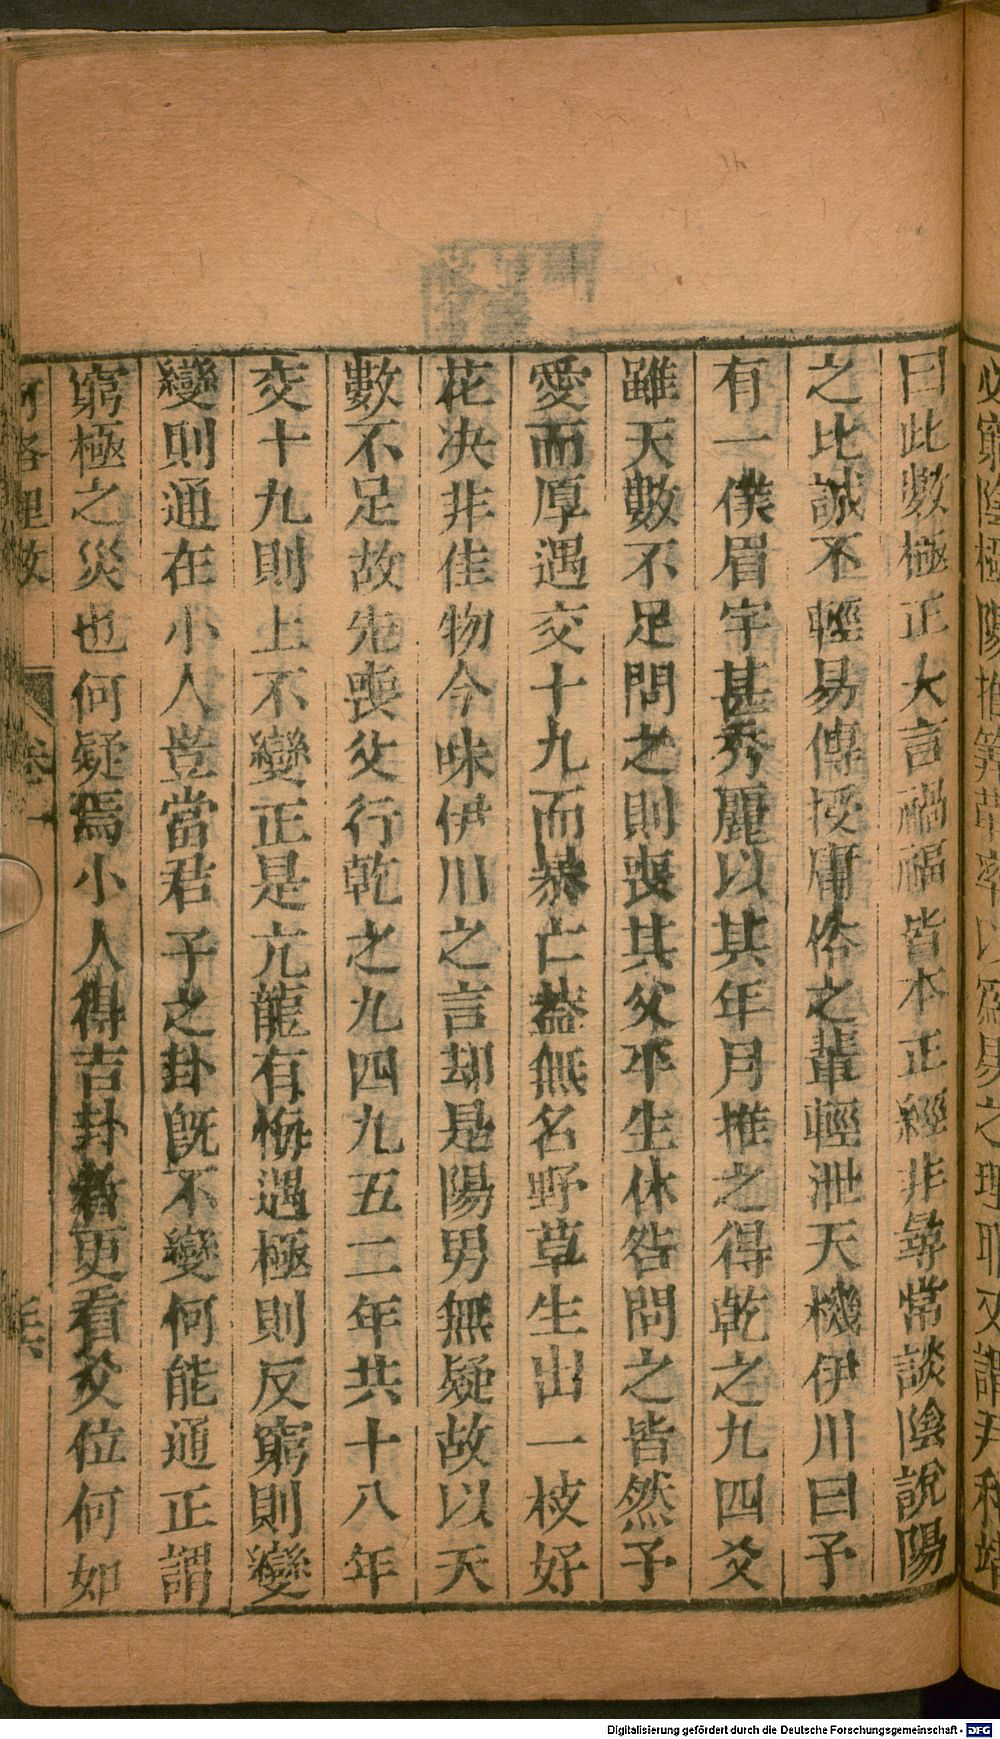 曰此數極正大言禍福皆本正經非尋常談陰說陽
之比誠不輕易傳授庸俗之輩輕泄天機伊川曰予
有一僕眉宇甚秀麗以其年月推之得乾之九四爻
雖天數不足問之則喪其父平生休咎問之皆然予
愛而厚遇交十九而暴亡蓋無名野草生出一枝好
花决非佳物今味伊川之言却是陽男無疑故以天
數不足故先喪父行乾之九四九五二年共十八年
交十九則上不變正是亢龍有悔遇極則反窮則變
變則通在小人豈當君子之卦旣不變何能通正謂
窮極之災也何疑焉小人得吉卦者更看爻位何如
河洛理數
卷一
Digitalisierung gefördert durch die Deutsche Forschungsgemeinschaft - DFG